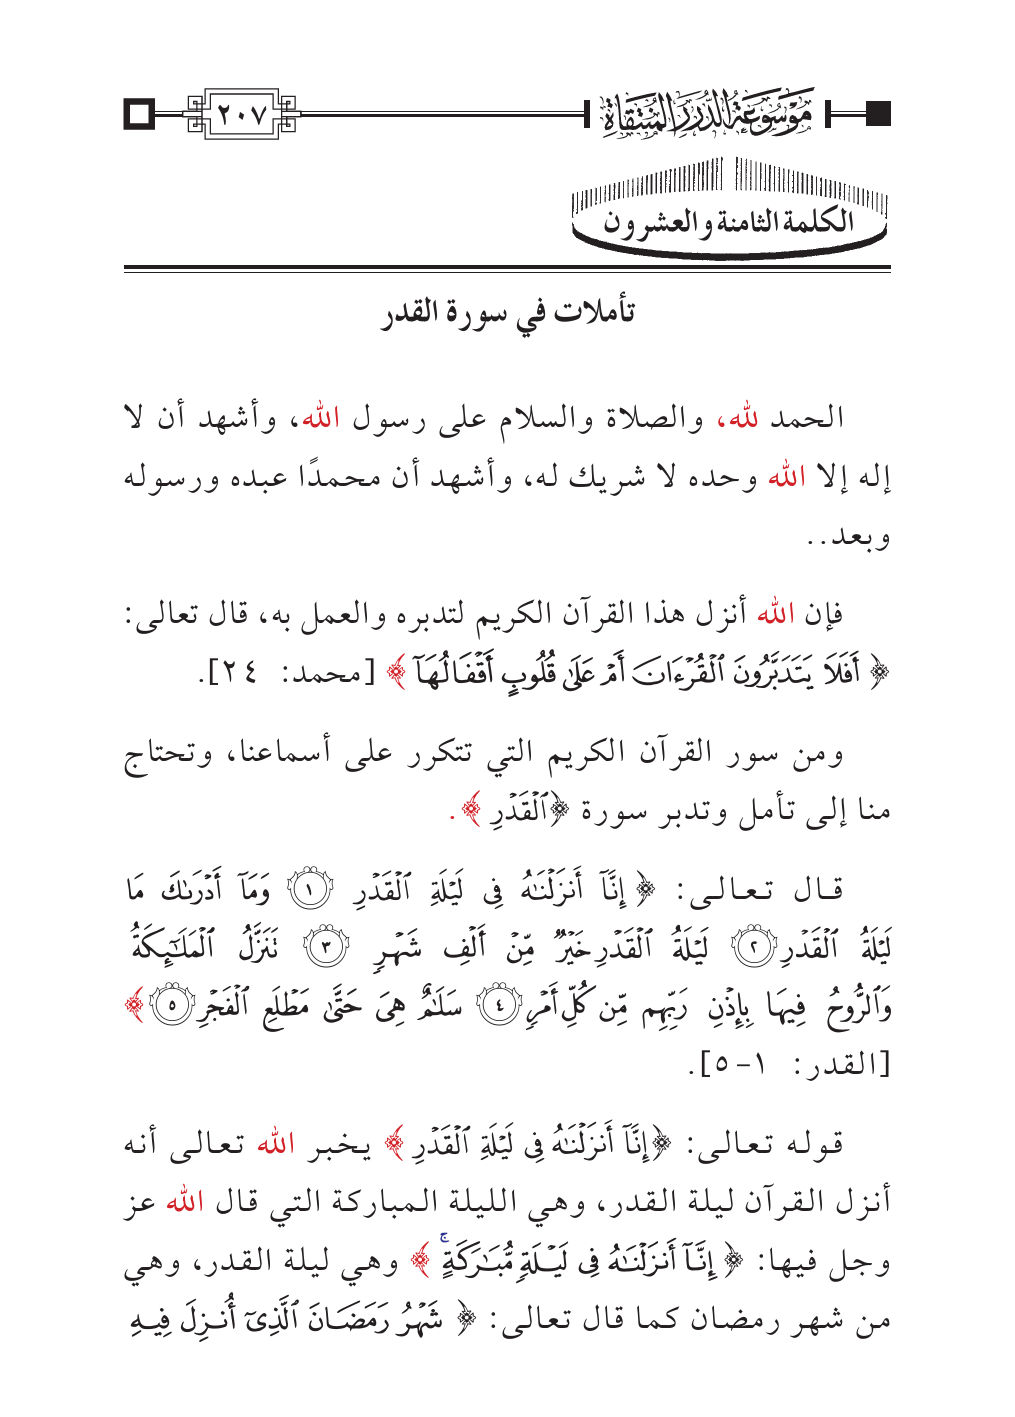 موسوعة الدرر المنتقاة
٢٠٧
الكلمة الثامنة والعشرون
تأملات في سورة القدر
الحمد لله، والصلاة والسلام على رسول الله، وأشهد أن لا
إله إلا الله وحده لا شريك له، وأشهد أن محمدًا عبده ورسوله
وبعد..
فإن الله أنزل هذا القرآن الكريم لتدبره والعمل به، قال تعالى:
﴿ أَفَلَا يَتَدَبَّرُونَ ٱلْقُرْءَانَ أَمْ عَلَىٰ قُلُوبٍ أَقْفَالُهَآ ﴾ [محمد: ٢٤].
ومن سور القرآن الكريم التي تتكرر على أسماعنا، وتحتاج
منا إلى تأمل وتدبر سورة ﴿ٱلْقَدْرِ ﴾.
قال تعالى: ﴿ إِنَّآ أَنزَلْنَٰهُ فِى لَيْلَةِ ٱلْقَدْرِ ١ وَمَآ أَدْرَىٰكَ مَا
لَيْلَةُ ٱلْقَدْرِ ٢ لَيْلَةُ ٱلْقَدْرِ خَيْرٌ مِّنْ أَلْفِ شَهْرٍ ٣ تَنَزَّلُ ٱلْمَلَٰٓئِكَةُ
وَٱلرُّوحُ فِيهَا بِإِذْنِ رَبِّهِم مِّن كُلِّ أَمْرٍ ٤ سَلَٰمٌ هِىَ حَتَّىٰ مَطْلَعِ ٱلْفَجْرِ ٥ ﴾
[القدر: ١-٥].
قوله تعالى: ﴿إِنَّآ أَنزَلْنَٰهُ فِى لَيْلَةِ ٱلْقَدْرِ ﴾ يخبر الله تعالى أنه
أنزل القرآن ليلة القدر، وهي الليلة المباركة التي قال الله عز
وجل فيها: ﴿ إِنَّآ أَنزَلْنَٰهُ فِى لَيْلَةٍ مُّبَٰرَكَةٍ ۚ ﴾ وهي ليلة القدر، وهي
من شهر رمضان كما قال تعالى: ﴿ شَهْرُ رَمَضَانَ ٱلَّذِىٓ أُنزِلَ فِيهِ